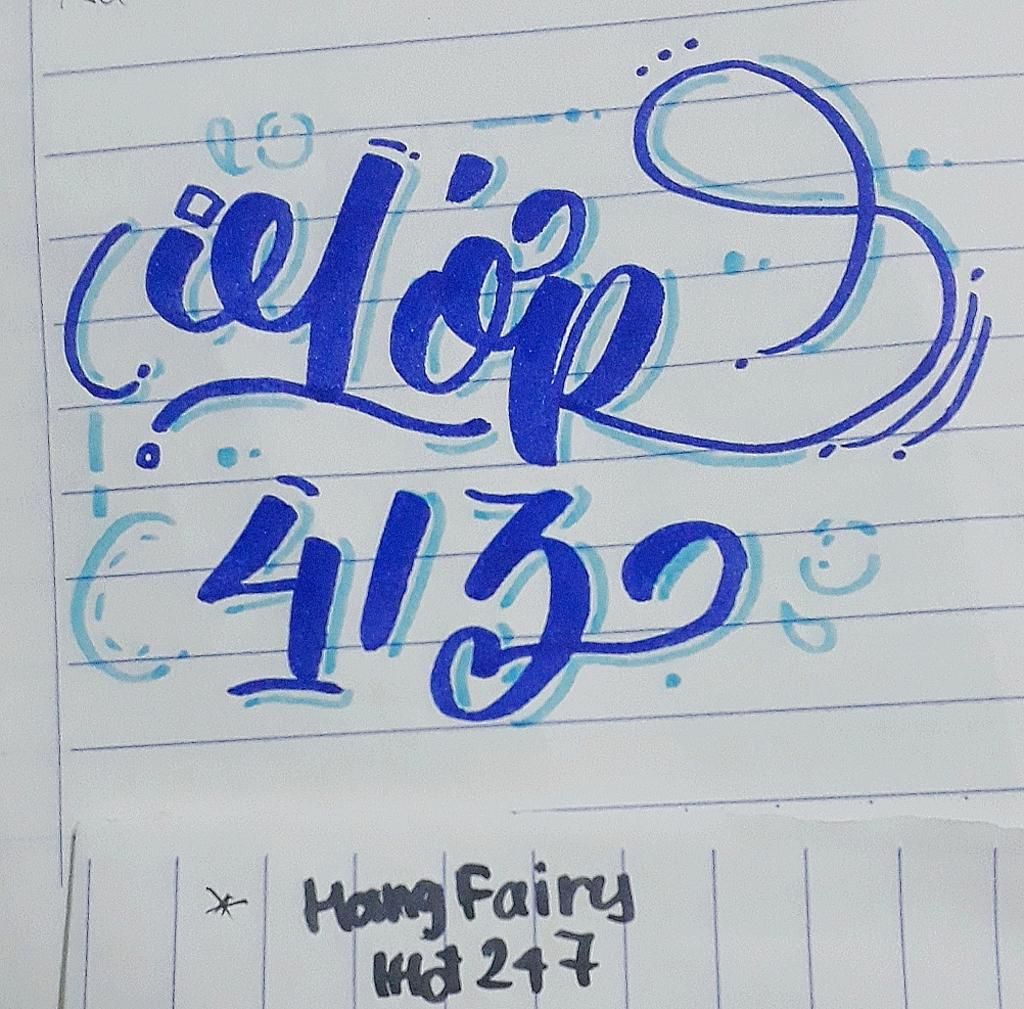 Lớp
4/3
* Hang Fairy
Hđt 247